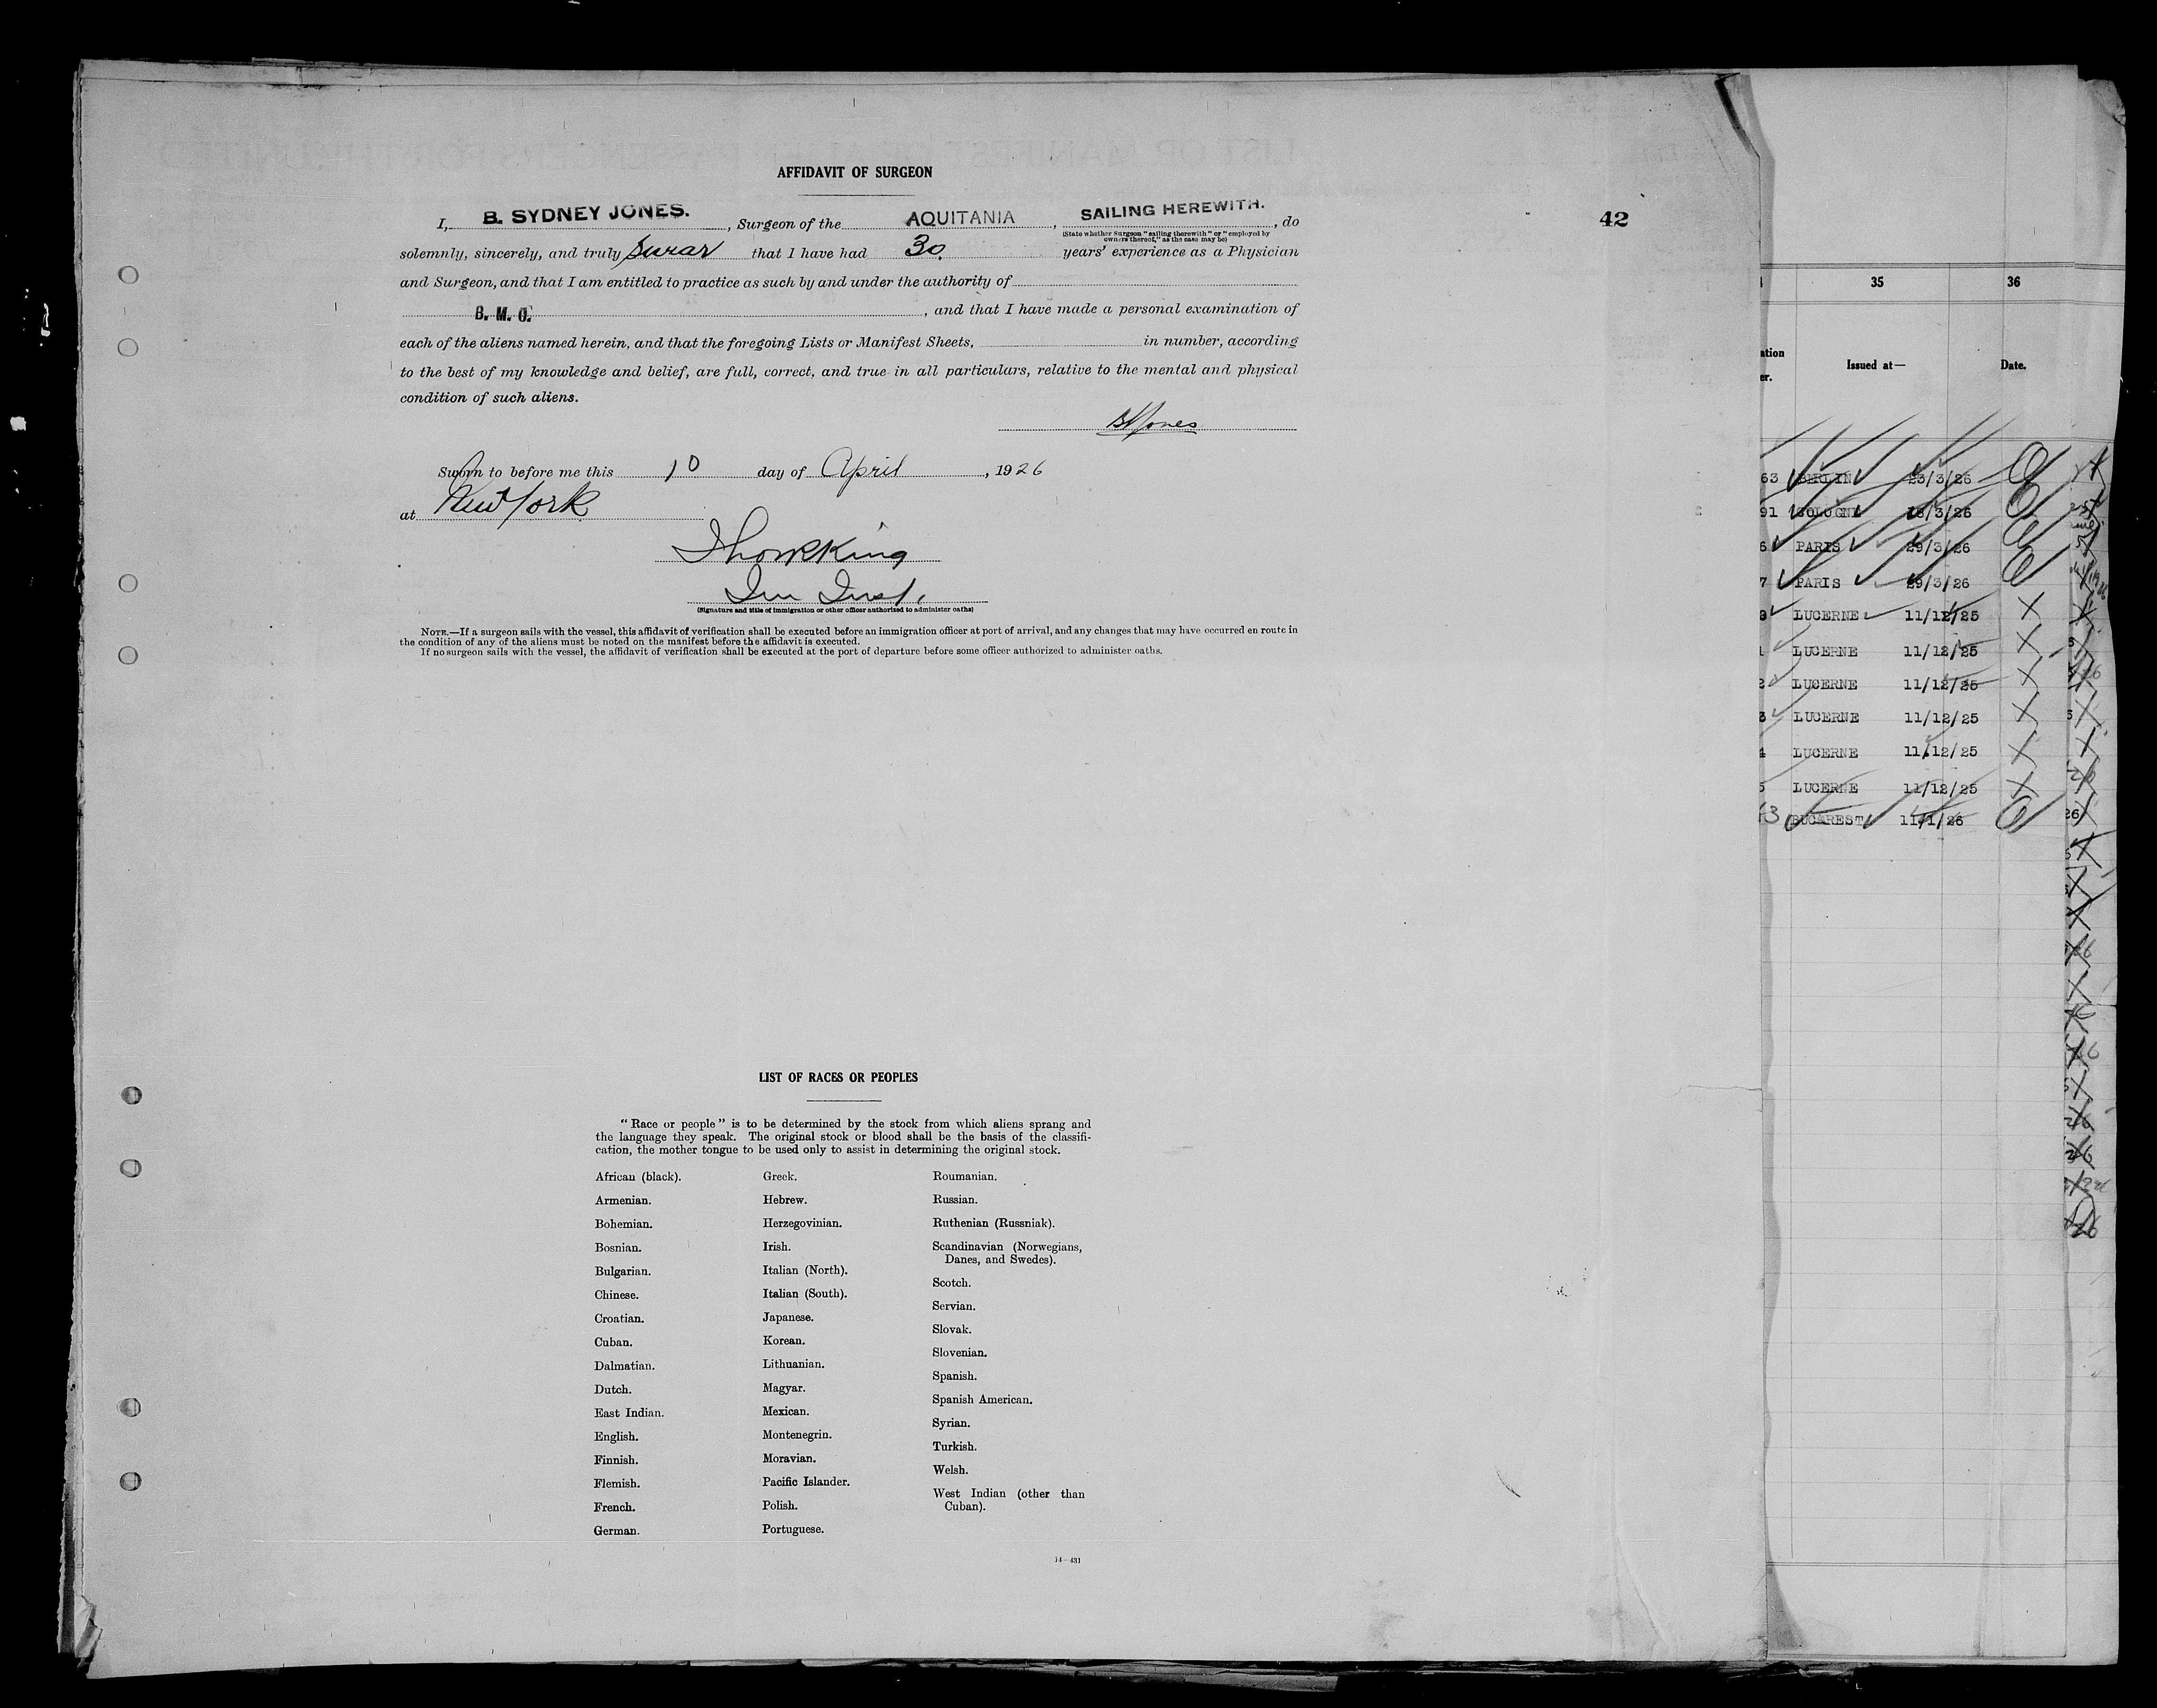 AFFIDAVIT OF SURGEON
42
I, B. SYDNEY JONES. , Surgeon of the AQUITANIA , SAILING HEREWITH. , do
(State whether Surgeon "sailing therewith" or "employed by
owners thereof," as the case may be)
solemnly, sincerely, and truly swear that I have had 30 years' experience as a Physician
and Surgeon, and that I am entitled to practice as such by and under the authority of
B. M. O. , and that I have made a personal examination of
each of the aliens named herein, and that the foregoing Lists or Manifest Sheets, in number, according
to the best of my knowledge and belief, are full, correct, and true in all particulars, relative to the mental and physical
condition of such aliens.
Jones
Sworn to before me this 10 day of April , 1926
at New York
Imm Insp.
(Signature and title of immigration or other officer authorized to administer oaths)
NOTE.—If a surgeon sails with the vessel, this affidavit of verification shall be executed before an immigration officer at port of arrival, and any changes that may have occurred en route in
the condition of any of the aliens must be noted on the manifest before the affidavit is executed.
If no surgeon sails with the vessel, the affidavit of verification shall be executed at the port of departure before some officer authorized to administer oaths.
LIST OF RACES OR PEOPLES
"Race or people" is to be determined by the stock from which aliens sprang and
the language they speak. The original stock or blood shall be the basis of the classifi-
cation, the mother tongue to be used only to assist in determining the original stock.
African (black).
Armenian.
Bohemian.
Bosnian.
Bulgarian.
Chinese.
Croatian.
Cuban.
Dalmatian.
Dutch.
East Indian.
English.
Finnish.
Flemish.
French.
German.
Greek.
Hebrew.
Herzegovinian.
Irish.
Italian (North).
Italian (South).
Japanese.
Korean.
Lithuanian.
Magyar.
Mexican.
Montenegrin.
Moravian.
Pacific Islander.
Polish.
Portuguese.
Roumanian.
Russian.
Ruthenian (Russniak).
Scandinavian (Norwegians,
Danes, and Swedes).
Scotch.
Servian.
Slovak.
Slovenian.
Spanish.
Spanish American.
Syrian.
Turkish.
Welsh.
West Indian (other than
Cuban).
14—431
35 36
Issued at— Date.
63 BERLIN 23/3/26
91 COLOGNE 18/3/26
6 PARIS 29/3/26
7 PARIS 29/3/26
LUCERNE 11/12/25
LUCERNE 11/12/25
2 LUCERNE 11/12/25
3 LUCERNE 11/12/25
4 LUCERNE 11/12/25
5 LUCERNE 11/12/25
13 BUCAREST 11/1/26